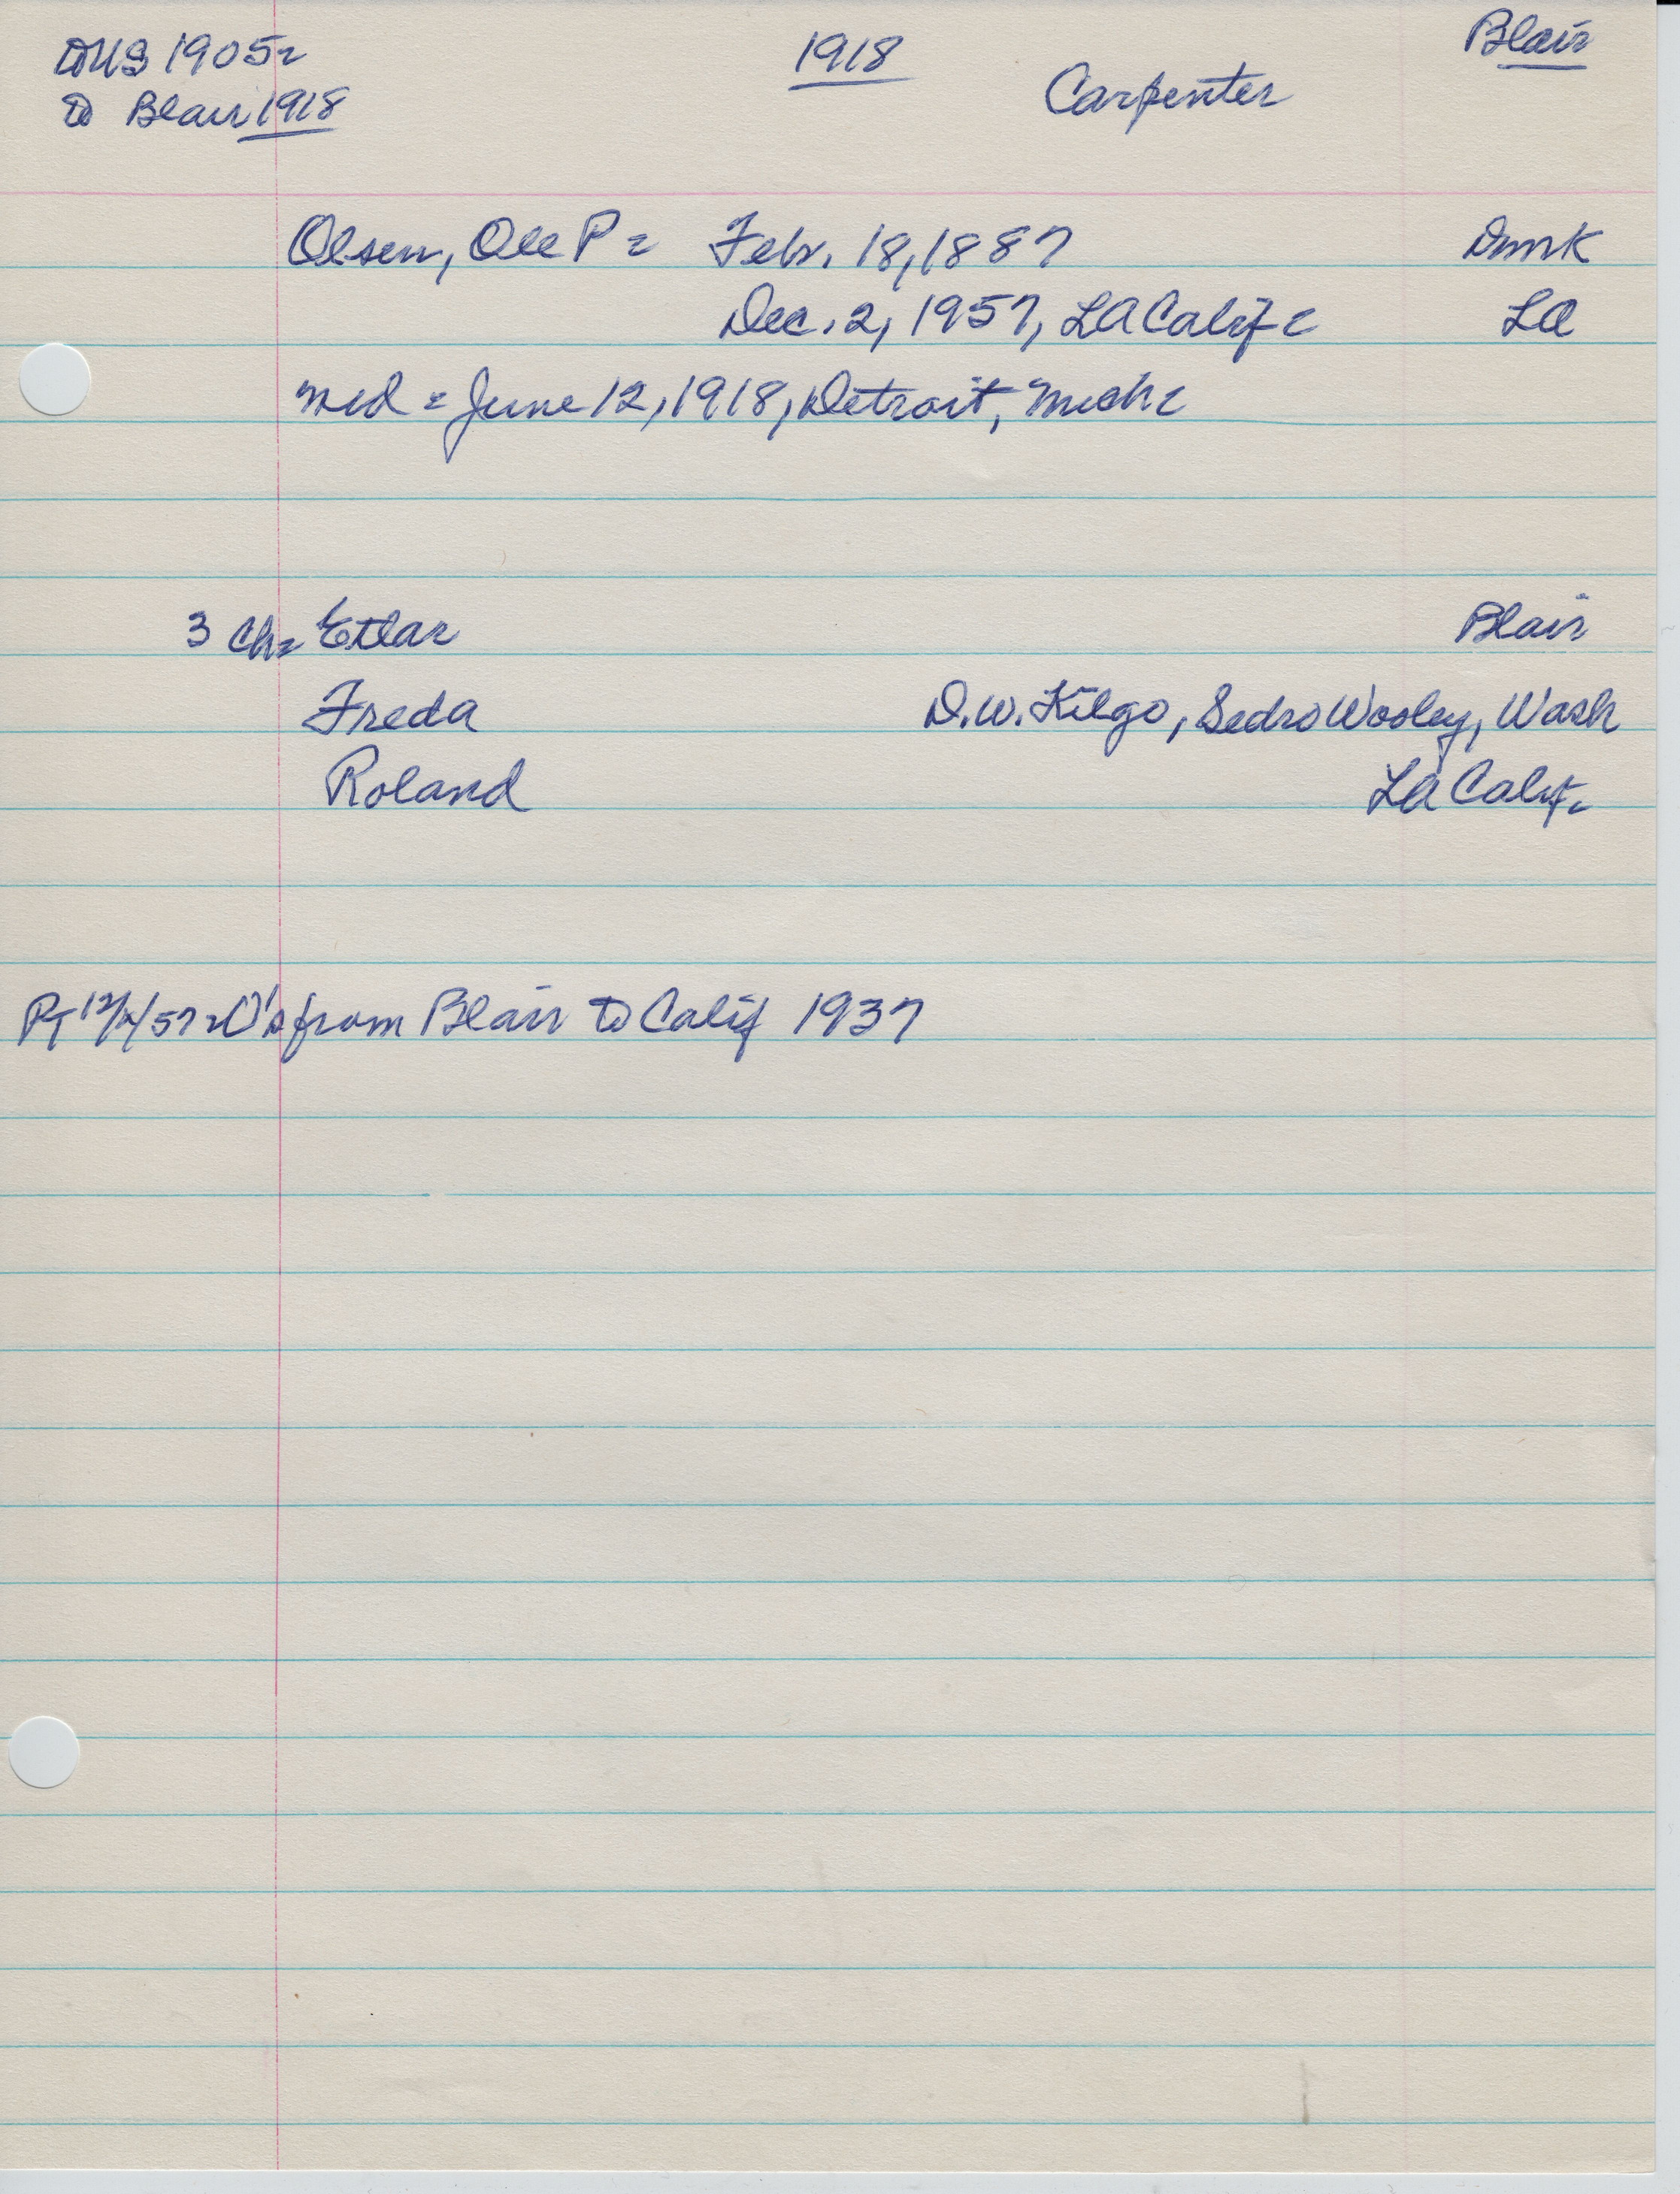 to US 1905 =
to Blair 1918
1918
Carpenter
Blair
Olsen, Ole P = Febr. 18, 1887 Dmrk
Dec. 2, 1957, LA Calif = LA
med = June 12, 1918, Detroit, Mich =
3 Ch = Etlar Blair
Freda D.W. Kilgo, Sedro Wooley, Wash
Roland LA Calif =
PT 12/ /57 = O's from Blair to Calif 1937